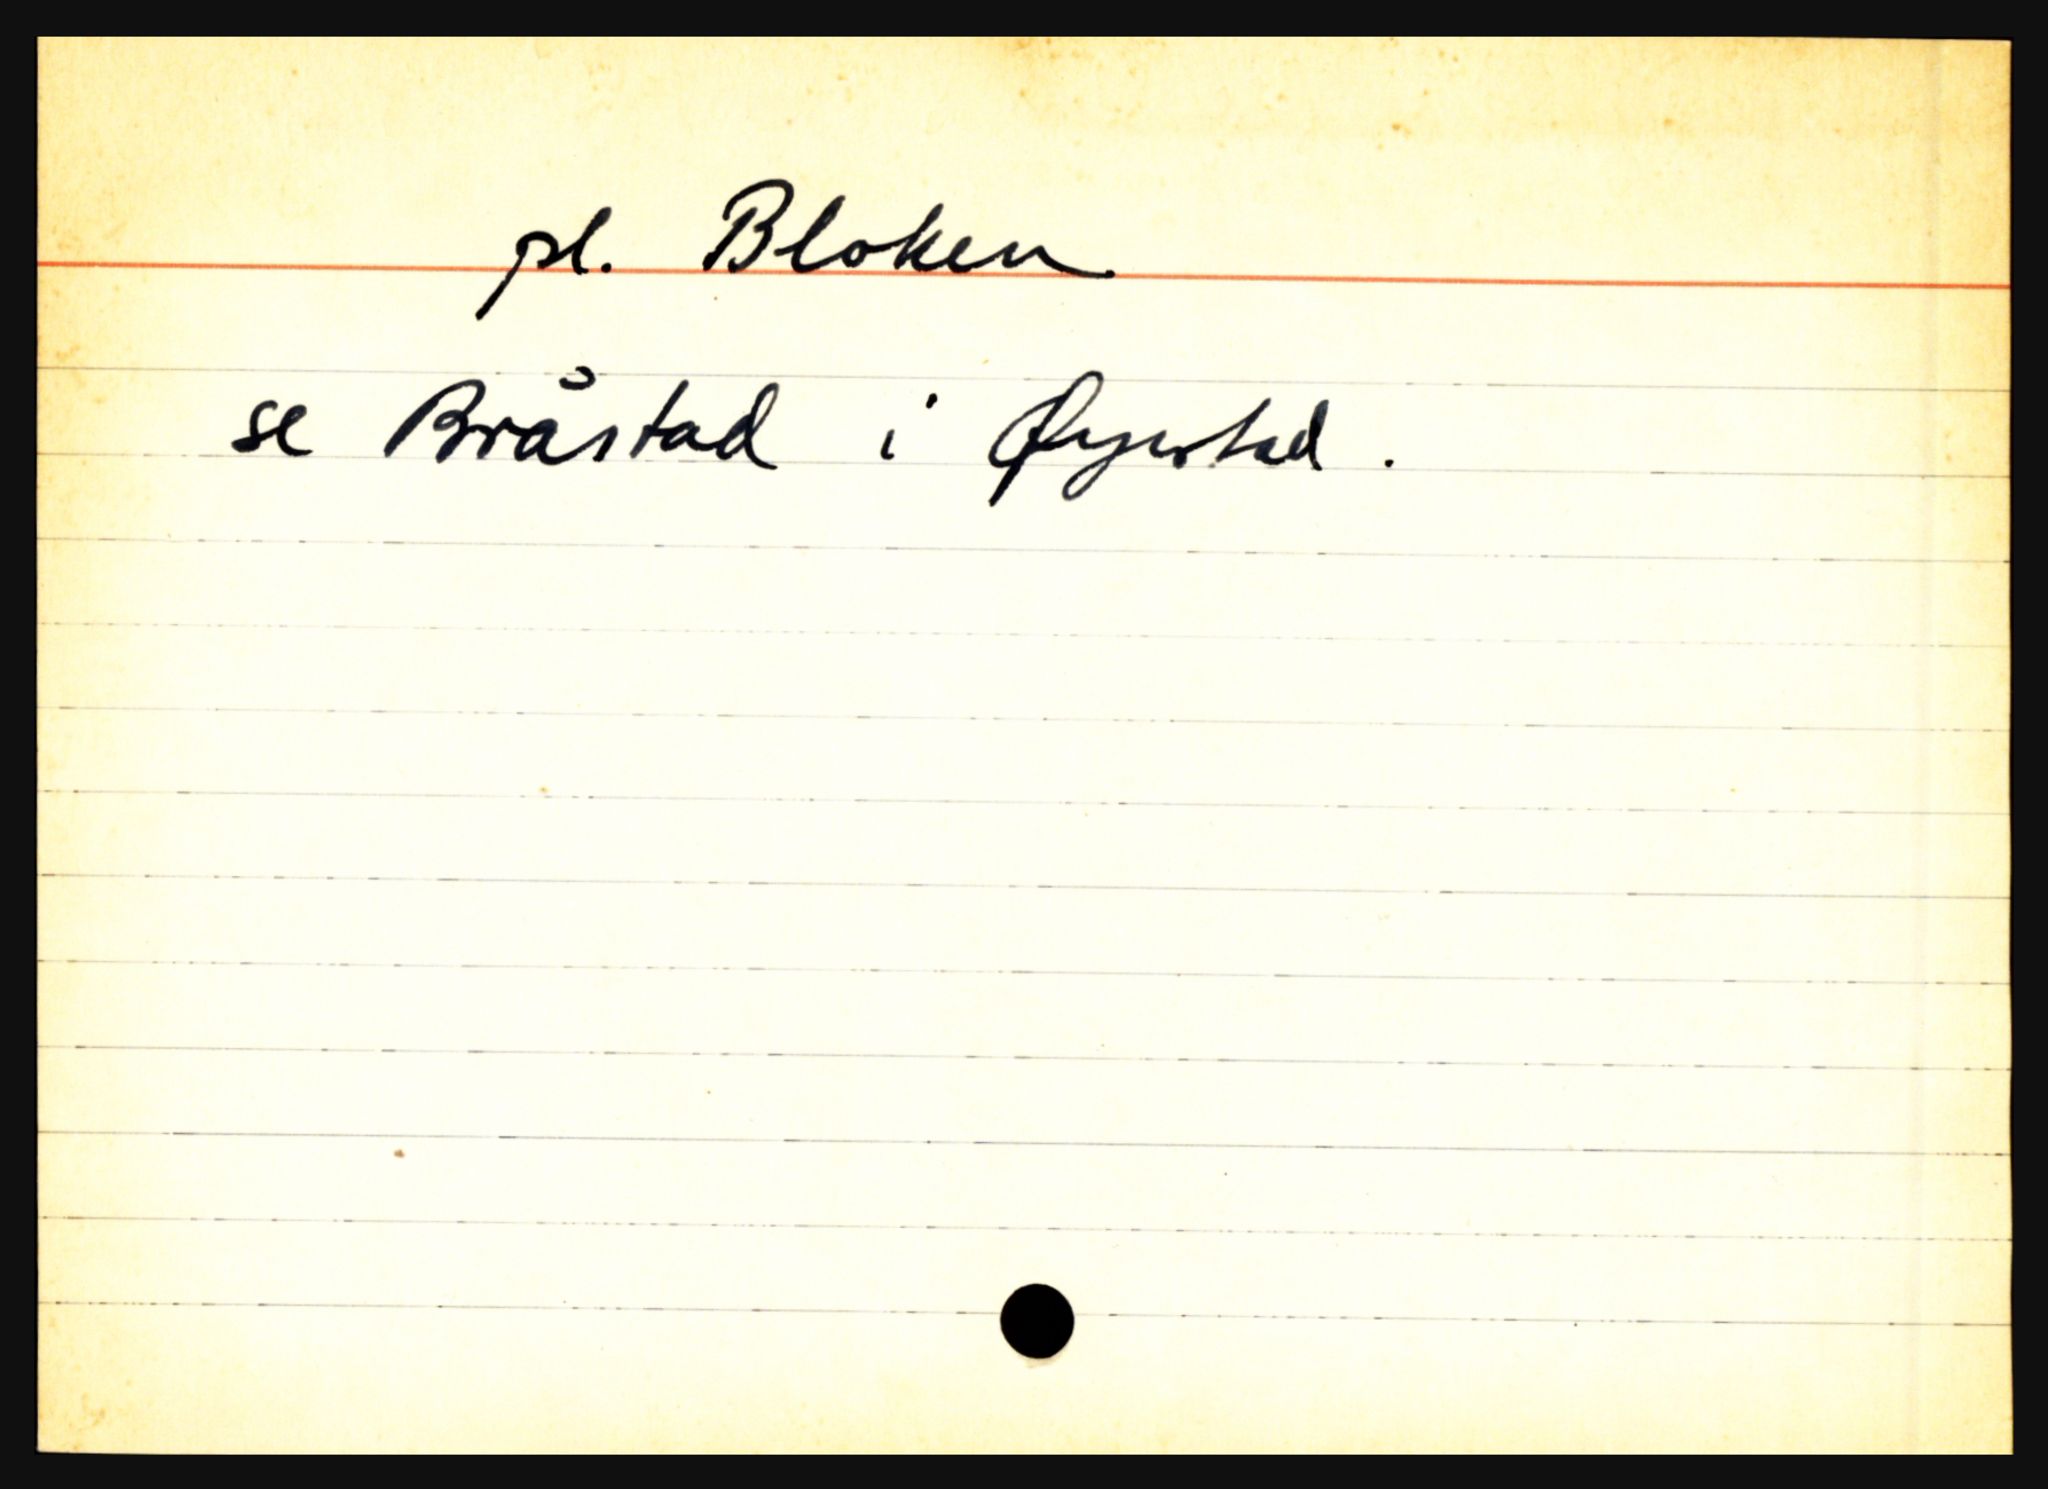 pl. Bloken
se Bråstad i Øyestad.